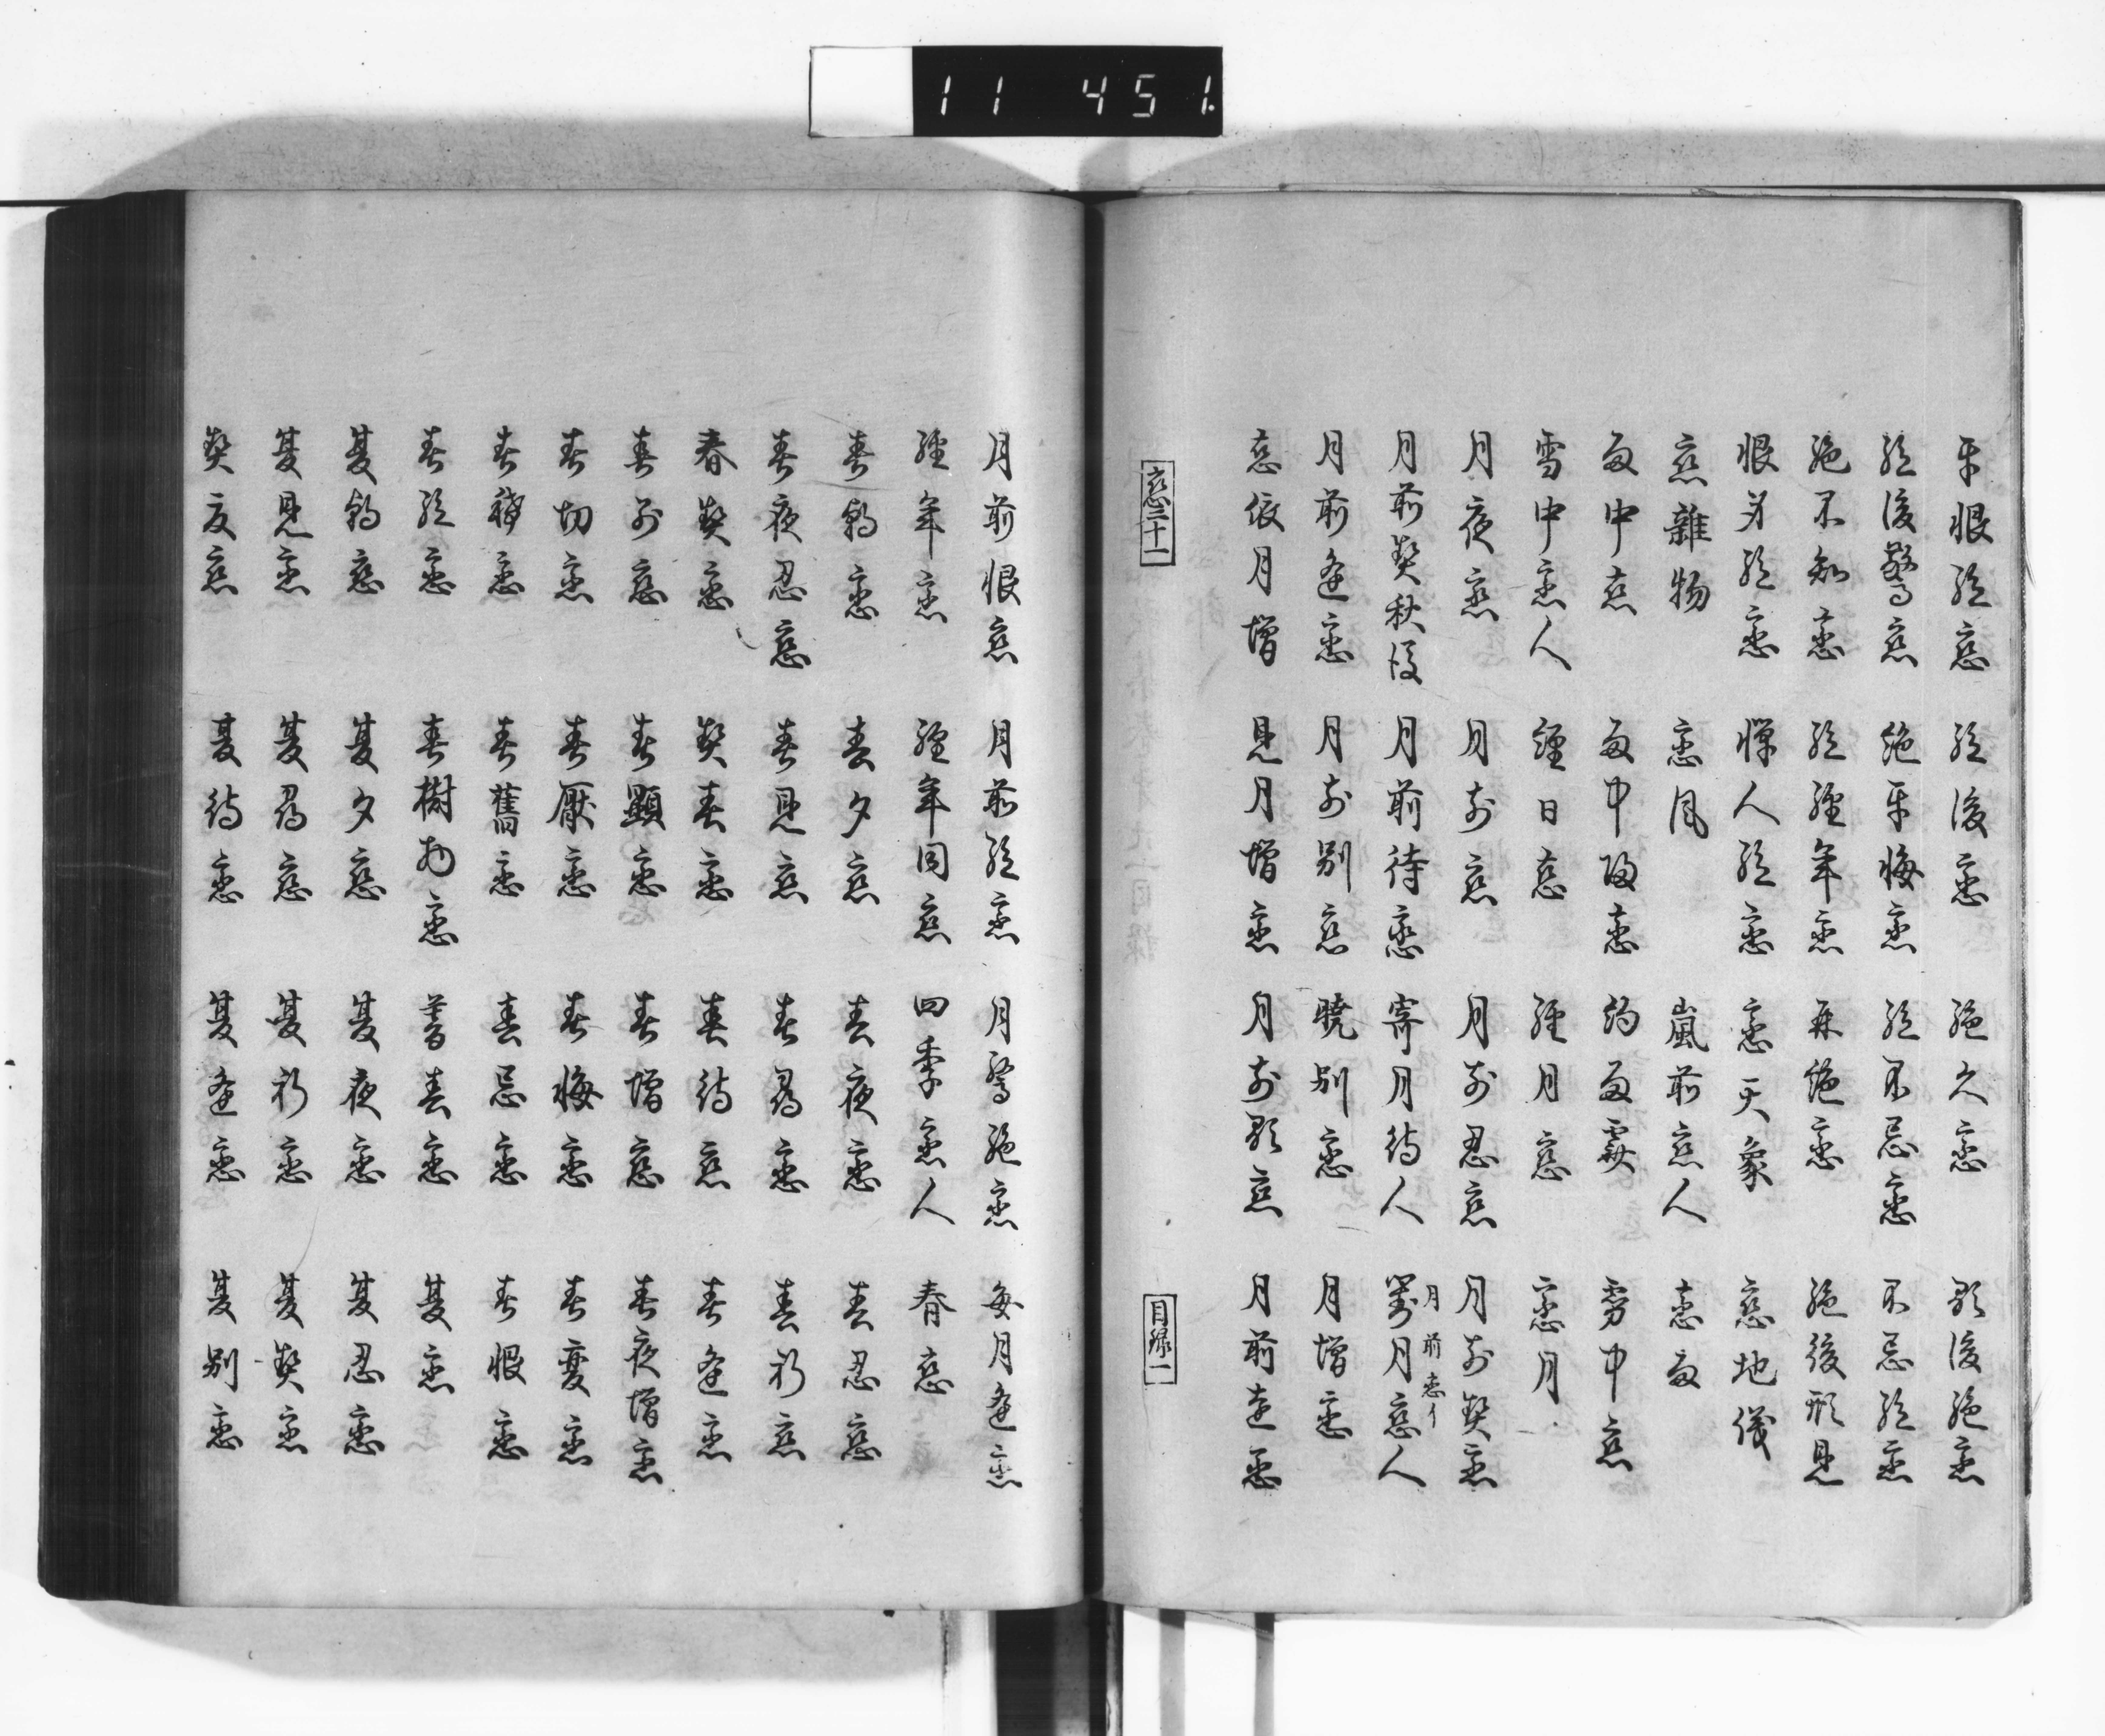 11 451
互恨絶恋 絶後恋 絶久恋 顕後絶恋
絶後驚恋 絶互悔恋 絶不忘恋 不忘絶恋
絶不知恋 絶経年恋 再絶恋 絶後形見
恨身絶恋 憚人絶恋 恋天象 恋地儀
恋雑物 恋風 嵐前恋人 恋雨
雨中恋 雨中 恋 約雨 雰中恋
雪中恋人 経日恋 経月恋 恋月
月夜恋 月前恋 月前忍恋 月前契恋
月前契秋後 月前待恋 寄月待人 対月恋人
月前恋イ
月前逢恋 月前別恋 暁別恋 月増恋
恋依月増 見月増恋 月前顕恋 月前遠恋
恋三十一 目録一
月前恨恋 月前絶恋 月驚絶恋 毎月逢恋
経年恋 経年同恋 四季恋人 春恋
春朝恋 春夕恋 春夜恋 春忍恋
春夜忍恋 春見恋 春尋恋 春祈恋
春契恋 契春恋 春待恋 春逢恋
春別恋 春顕恋 春増恋 春夜増恋
春切恋 春厭恋 春悔恋 春変恋
春稀恋 春旧恋 春忘恋 春恨恋
春絶恋 春樹物恋 暮春恋 夏恋
夏朝恋 夏夕恋 夏夜恋 夏忍恋
夏見恋 夏尋恋 夏祈恋 夏契恋
契夏恋 夏待恋 夏逢恋 夏別恋